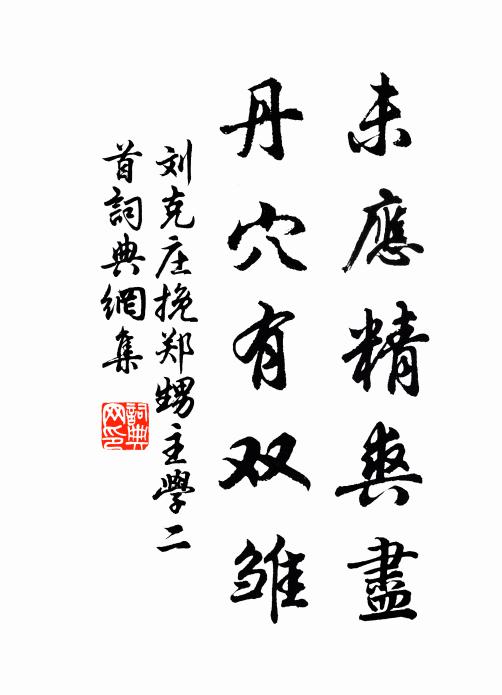 未應精爽盡
丹穴有双雏
刘克庄挽郑甥主學二
首詞典網集
詞典
网印